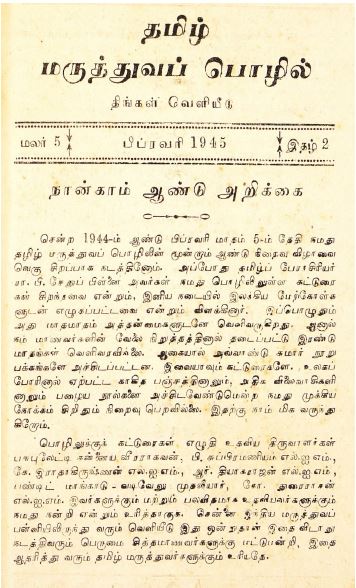 தமிழ்
மருத்துவப் பொழில்
திங்கள் வெளியீடு
மலர் 5 பிப்ரவரி 1945 இதழ் 2
நான்காம் ஆண்டு அறிக்கை
சென்ற 1944-ம் ஆண்டு பிப்ரவரி மாதம் 5-ம் தேதி நமது
தமிழ் மருத்துவப் பொழிலின் மூன்றும் ஆண்டு நிறைவு விழாவை
வெகு சிறப்பாக நடத்தினோம். அப்போது தமிழ்ப் பேராசிரியர்
ரா. பி. சேதுப் பிள்ளை அவர்கள் நமது பொழிலிலுள்ள கட்டுரை
கள் சிறந்தவை என்றும், இனிய நடையில் இலக்கிய மேற்கோள்க
ளுடன் எழுதப்பட்டவை என்றும் விளக்கினார். இப்பொழுதும்
அது மாதமாதம் அத்தன்மைகளுடனே வெளிவருகிறது. ஆனால்
நம் மாணவர்களின் வேலை நிறுத்தத்தினால் தடைப்பட்டு இரண்டு
மாதங்கள் வெளிவரவில்லை. ஆகையால் அவ்வாண்டு சுமார் நூறு
பக்கங்களே அச்சிடப்பட்டன. இவையாவும் கட்டுரைகளே. உலகப்
போரினால் ஏற்பட்ட காகித பஞ்சத்தினாலும், அதிக விலைவாசிகளி
னாலும் பழைய நூல்களை அச்சிடவேண்டுமென்ற நமது முக்கிய
நோக்கம் சிறிதும் நிறைவு பெறவில்லை. இதற்கு நாம் மிக வருந்து
கிறோம்.
பொழிலுக்குக் கட்டுரைகள் எழுதி உதவிய திருவாளர்கள்
பசுபுலேட்டி கன்னைய வீரராகவன், பி. சுப்பிரமணியம் எல்.ஐ.எம்.,
கே. இராதாகிருஷ்ணன் எல்.ஐ.எம்., ஆர். தியாகராஜன் எல்.ஐ.எம்.,
பண்டிட் மாங்காடு - வடிவேலு முதலியார், கோ. துரைராசன்
எல்.ஐ.எம். இவர்களுக்கும் மற்றும் பலவிதமாக உதவியவர்களுக்கும்
நமது நன்றி என்றும் உரித்தாகுக. சென்னை இந்திய மருத்துவப்
பள்ளியிலிருந்து வரும் வெளியீடு இது ஒன்றுதான் இதை விடாது
நடத்திவரும் பெருமை சித்தமாணவர்களுக்கு மட்டுமன்றி, இதை
ஆதரித்து வரும் தமிழ் மருத்துவர்களுக்கும் உரியதே.